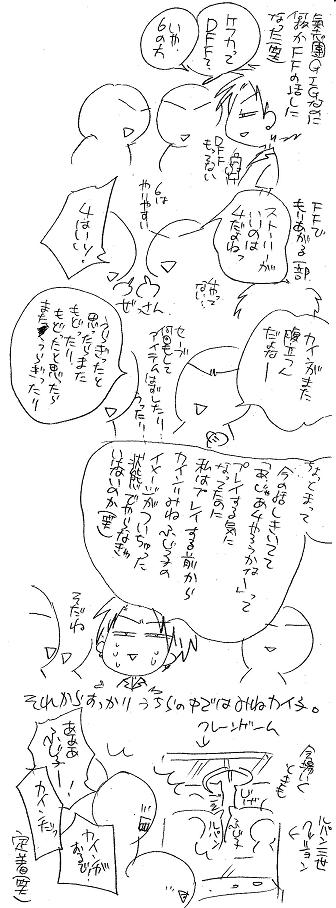 氣志團GIGなのに
何故かFFの話しに
なった(笑)
ケフカって
DFFで?
いや
6の方
DFF
もってない
6は
やりやすい
FFで
もりあがる一部
ストーリーが
いいのは
4だよねっ
4はいい!
さん
ぜ
やって
ない
カインがまた
腹立つん
だよなー
セーブ
何回もして
アイテム
ったり
うらぎったと
思ったらまた
もどったり
もどったと思ったら
また
うらぎったり
ちょっとまって
今の話しきいてて
「あ、じゃあ4やろうかなー」って
プレイする気に
なってたのに
私はプレイする前から
カイン=みねふじ子の
イメージがついちゃった
状態でやんなきゃ
いけないのか(笑)
そだね
それからすっかりうちらの中ではみねカイ子。
クレーンゲーム
今場しく
ともも
ルパン三世
コレクション
ふじ子
ルパン
あああ
ふじ子ー!
カインだっ
カインが
おるぞ!
定着(笑)